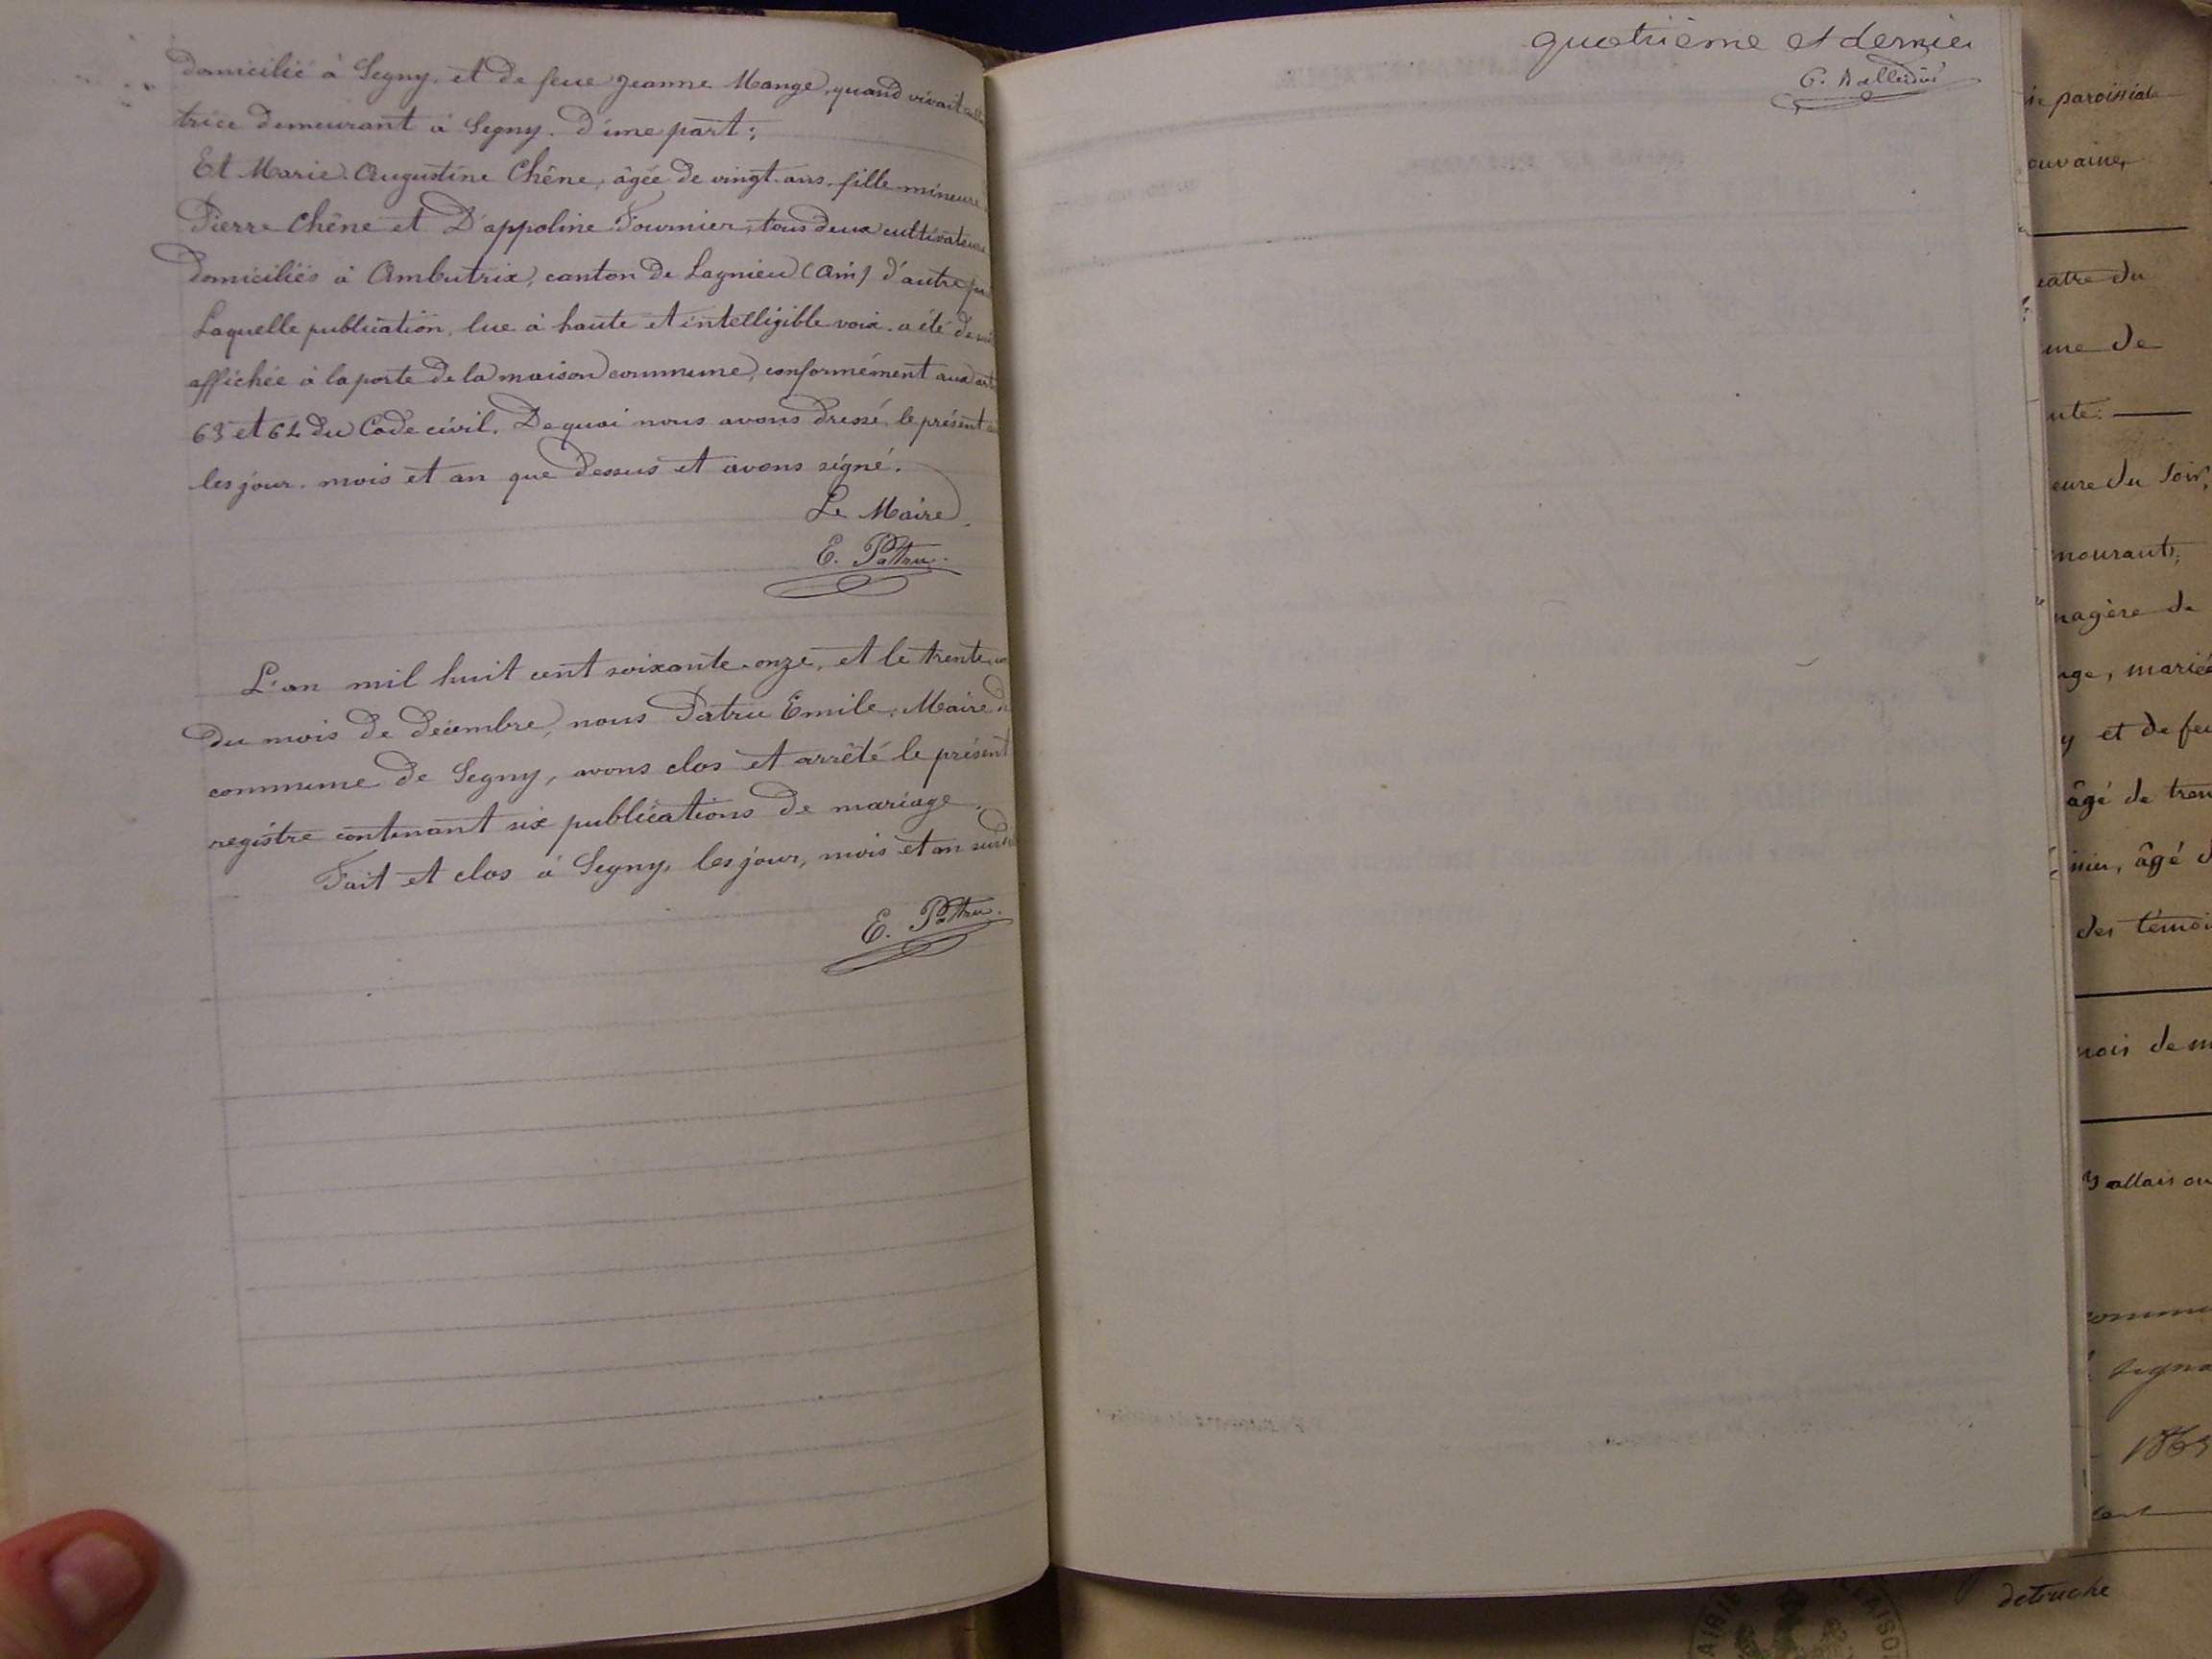 domicilié à Segny, et de feue Jeanne Mange, quand vivait
trice demeurant à Segny. D'une part;
Et Marie Augustine Chêne, âgée de vingt ans, fille mineure
Pierre Chêne et D'appoline Fournier, tous deux cultivateurs
domiciliés à Ambutrix, canton de Lagnieu (Ain) d'autre
Laquelle publication, lue à haute et intelligible voix, a été de
affichée à la porte de la maison commune, conformément aux
63 et 64 du Code civil. De quoi nous avons dressé le présent
les jour, mois et an que dessus et avons signé.
Le Maire
E. Patru
L'an mil huit cent soixante-onze, et le trente
du mois de décembre, nous Patru Emile, Maire
commune de Segny, avons clos et arrêté le présent
registre contenant six publications de mariage.
Fait et clos à Segny, les jour, mois et an
E. Patru.
quatrième et dernier
ie paroissiale
ouvaine,
eatre du
me de
nte:
eure du soir,
mourant;
nagère de
age, mariée
y et de feu
âgé de tren
nier, âgé d
des témoi
mois de m
y allais ou
commu
signa
detruche